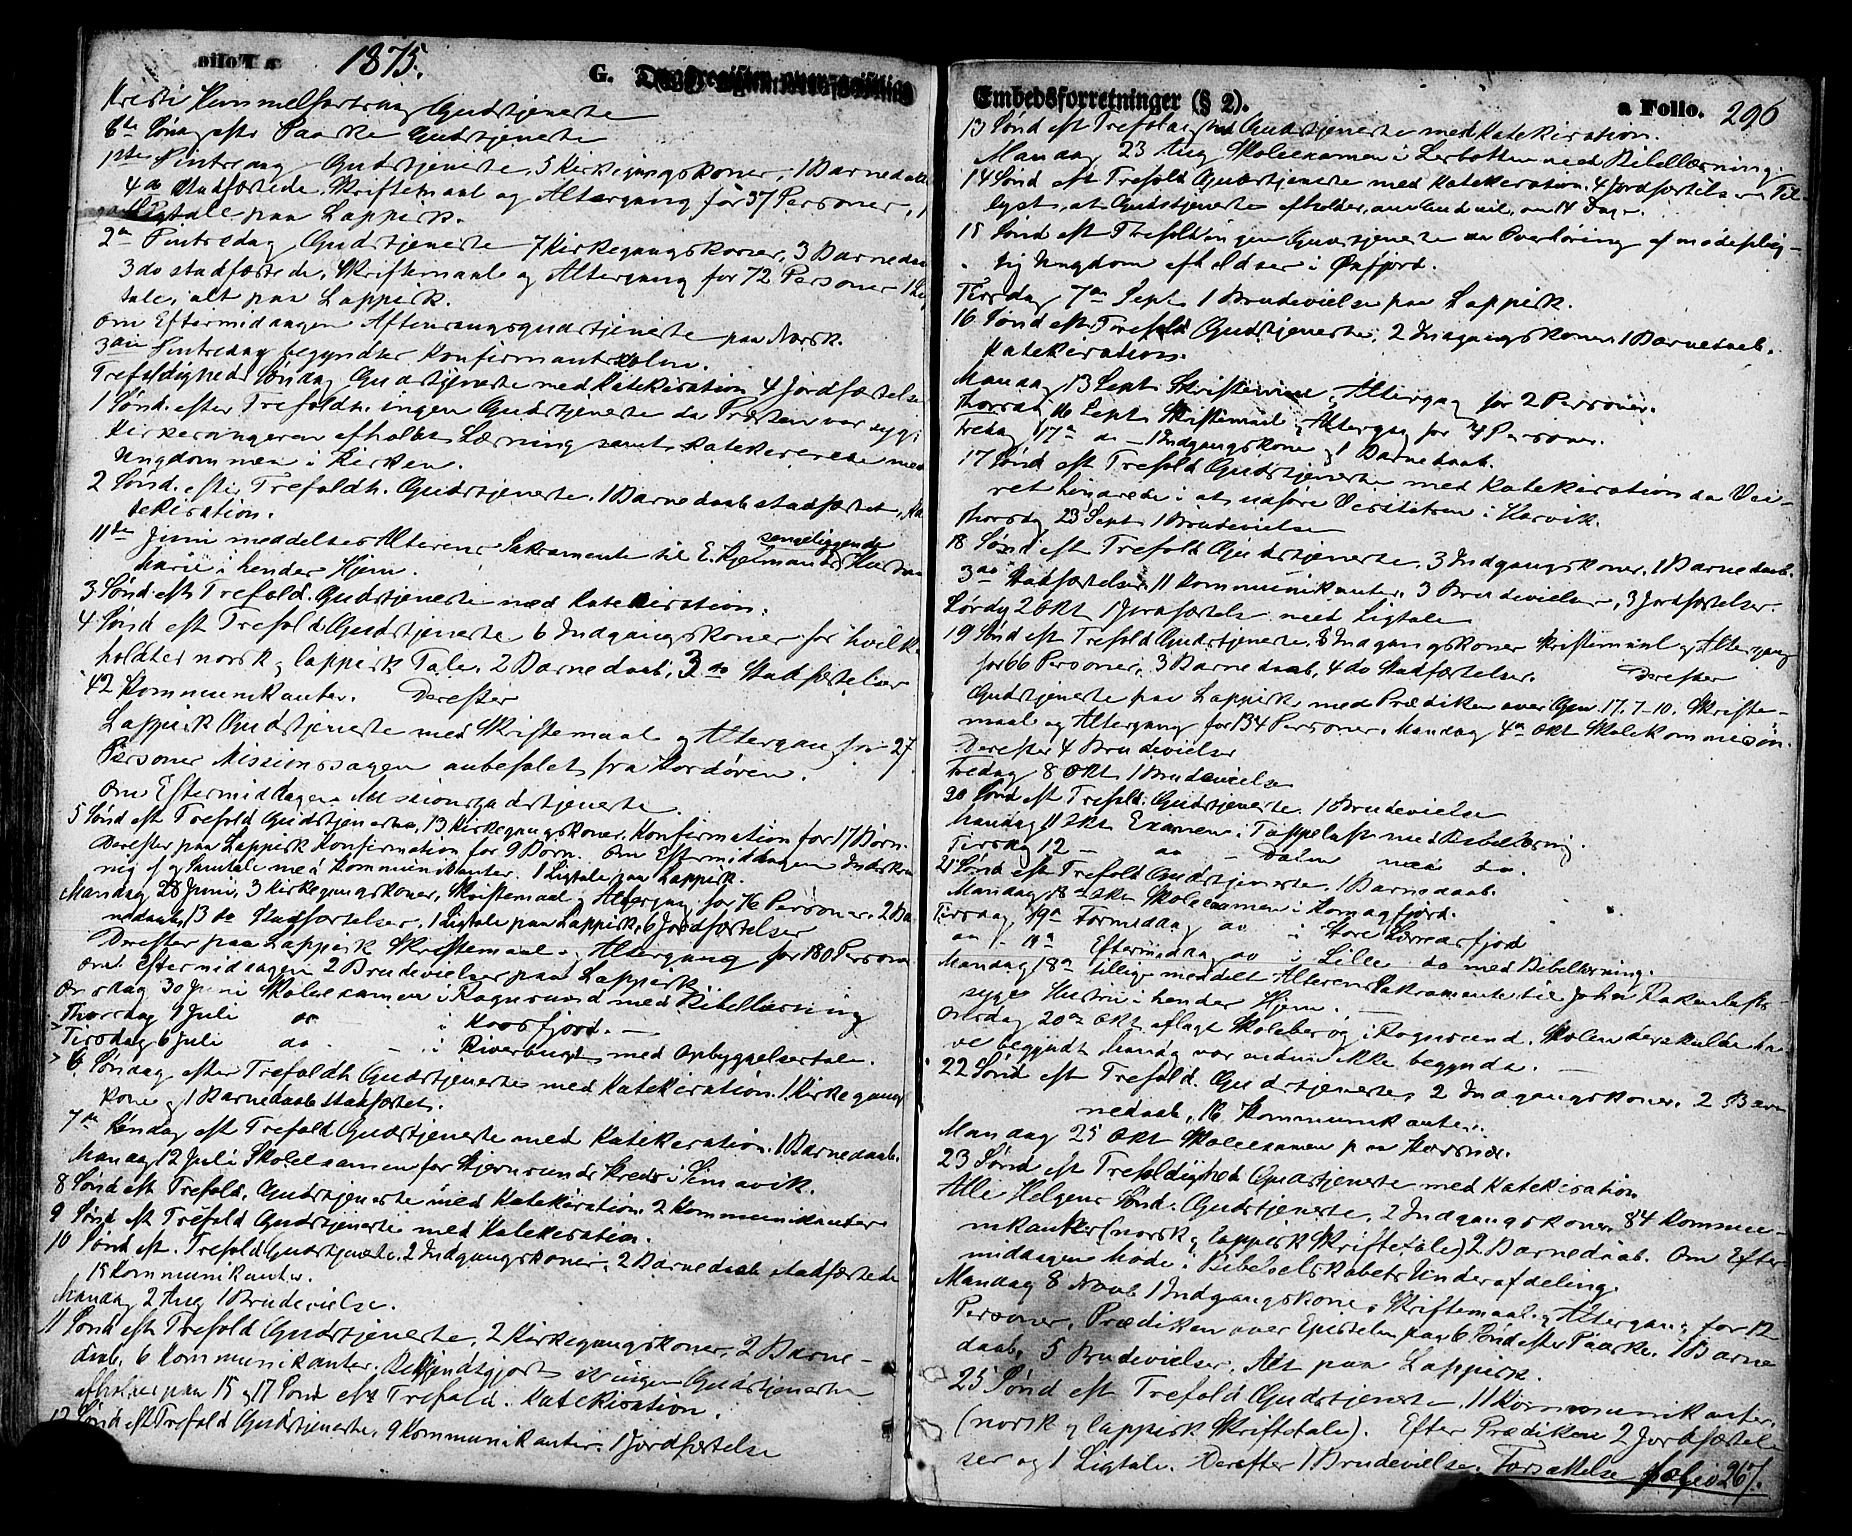 1875.
G.
Kristi Himmelfartsdag Gudstjeneste
6te Sønd. eft. Paaske Gudstjeneste
1ste Pintsedag Gudstjeneste, 5 Kirkegangskoner, 1 Barnedaab
4 do stadfæstede. Skriftemaal og Altergang for 37 Personer, 1
Ligtale paa Lappisk.
2den Pintsedag Gudstjeneste 7 Kirkegangskoner, 3 Barnedaab
3 do stadfæstede, Skriftemaal og Altergang for 72 Personer 1 Lig
tale, alt paa Lappisk.
Om Eftermiddagen Aftensangsgudstjeneste paa Norsk.
3die Pintsedag begyndtes Konfirmantskolen.
Trefoldigheds Søndag Gudstjeneste med Katekisation 4 Jordfæstelser
1 Sønd. efter Trefoldh. ingen Gudstjeneste da Præsten var syg.
Kirkesangeren afholdt Læsning samt katekiserede med
Ungdommen i Kirken.
2 Sønd. efter Trefoldh. Gudstjeneste. 1 Barnedaab stadfæstet, Ka
tekisation.
sengeliggende
11te Juni meddeltes Alterens Sakramente til E. Kjelmands Hustru
Marie i hendes Hjem.
3 Sønd eft Trefold. Gudstjeneste med Katekisation.
4 Sønd eft Trefold Gudstjeneste 6 Indgangskoner for hvilke
holdtes norsk og lappisk Tale. 2 Barnedaab, 3 do Stadfæstelser
42 Kommunikanter. Derefter
Lappisk Gudstjeneste med Skriftemaal og Altergang for 27
Personer Missionssagen anbefalet fra Kordøren.
Om Eftermiddagen Missionsgudstjeneste.
5 Sønd eft Trefold Gudstjeneste, 13 Kirkegangskoner. Konfirmation for 17 Børn.
Derefter paa Lappisk Konfirmation for 9 Børn. Om Eftermiddagen Indskriv
ning af og Samtale med Kommunikanter. 1 Ligtale paa Lappisk.
Mandag 28 Juni, 3 Kirkegangskoner, Skriftemaal og Altergang for 76 Personer. 2 Bar
nedaab, 13 do Stadfæstelser, 1 Ligtale paa Lappisk, 6 Jordfæstelser
Derefter paa Lappisk Skriftemaal og Altergang for 180 Personer
Om Eftermiddagen 2 Brudevielser paa Lappisk.
Onsdag 30 Juni Skoleexamen i Rognsund med Bibellæsning
Thorsdag 1 Juli do — i Korsfjord. —
Tirsdag 6 Juli do — i Riverbugt med Opbyggelsestale.
6. Søndag efter Trefoldh Gudstjeneste med Katekisation. 1 Kirkegangs
kone og 1 Barnedaab stadfæstet.
7de Søndag eft Trefold Gudstjeneste med Katekisation. 1 Barnedaab.
Mandag 12 Juli Skoleexamen for Stjernsunds Kreds i Simavik.
8 Sønd eft Trefold. Gudstjeneste med Katekisation. 2 Kommunikanter
9 Sønd eft Trefold Gudstjeneste med Katekisation.
10 Sønd eft. Trefold Gudstjeneste. 2 Indgangskoner, 2 Barnedaab stadfæstede
15 Kommunikanter.
Mandag 2 Aug 1 Brudevielse.
11 Sønd eft Trefold Gudstjeneste, 2 Kirkegangskoner, 2 Barne-
daab, 6 Kommunikanter. Bekjendtgjort at ingen Gudstjeneste
afholdes paa 15 og 17 Sønd eft Trefold. Katekisation.
12 Sønd eft Trefold Gudstjeneste. 9 Kommunikanter. 1 Jordfæstelse
Embedsforretninger (§ 2).
a Folio. 296
13 Sønd eft Trefoldighed Gudstjeneste med Katekisation.
Mandag 23 Aug Skoleexamen i Lerbotten med Bibellæsning
14 Sønd eft Trefold Gudstjeneste med Katekisation. 4 Jordfæstelser Til
lyst, at Gudstjeneste afholdes, om Gud vil, om 14 Dage.
15 Sønd eft Trefold ingen Gudstjeneste da Overhøring af mødeplig-
tig Ungdom afholdes i Øxfjord.
Tirsdag 7de Sept 1 Brudevielse paa Lappisk.
16 Sønd eft Trefold Gudstjeneste, 2 Indgangskoner 1 Barnedaab.
Katekisation.
Mandag 13 Sept Skriftemaal, Altergang for 2 Personer.
Thorsdag 16 Sept Skriftemaal, Altergang for 4 Personer.
Fredag 17de do — 1 Indgangskone og 1 Barnedaab.
17 Sønd eft Trefold Gudstjeneste med Katekisation da Vei-
ret hindrede i at udføre Visitatsen i Hasvik.
Thorsdag 23 Sept 1 Brudevielse
18 Sønd eft Trefold Gudstjeneste, 3 Indgangskoner, 1 Barnedaab.
3 do Stadfæstelser 11 Kommunikanter. 3 Brudevielser, 3 Jordfæstelser.
Lørdag 2 Okt 1 Jordfæstelse med Ligtale
19 Sønd eft Trefold Gudstjeneste, 8 Indgangskoner Skriftemaal og Altergang
for 66 Personer, 3 Barnedaab, 4 do Stadfæstelser. Derefter
Gudstjeneste paa Lappisk med Prædiken over Gen 17.7-10. Skrifte-
maal og Altergang for 134 Personer. Mandag 4de Okt Skolekommission.
Derefter 4 Brudevielser
Fredag 8 Okt 1 Brudevielse
20 Sønd eft Trefold. Gudstjeneste. 1 Brudevielse
Mandag 11 Okt Examen i Tappeluft med Bibellæsning
Tirsdag 12 — do — Dalen med do.
21 Sønd eft Trefold Gudstjeneste. 1 Barnedaab.
Mandag 18de Okt Skoleexamen i Komagfjord.
Tirsdag 19de Formiddag do i Store Lerresfjord
do — 19de Eftermiddag do i Lille do med Bibellæsning.
Mandag 18de tillige meddelt Alterens Sakramente til John Rakenlufts
syge Hustru i hendes Hjem. —
Onsdag 20de Okt aflagt Skolebesøg i Rognsund. Skolen der skulde ha-
ve begyndt Mandag var endnu ikke begyndt. —
22 Sønd eft Trefold. Gudstjeneste, 2 Indgangskoner. 2 Bar
nedaab, 16 Kommunikanter.
Mandag 25 Okt Skoleexamen paa Korsnæs.
23 Sønd eft Trefoldighed Gudstjeneste med Katekisation
Alle Helgens Sønd. Gudstjeneste, 2 Indgangskoner 84 Kommu-
nikanter (norsk og lappisk Skriftetale) 2 Barnedaab. Om Efter
middagen Møde i Bibelselskabets Underafdeling.
Mandag 8 Novb 1 Indgangskone, Skriftemaal og Altergang for 12
Personer, Prædiken over Epistelen paa 6 Sønd efter Paaske. 1 Barne
daab, 5 Brudevielser. Alt paa Lappisk.
25 Sønd eft Trefold Gudstjeneste 11 Kommunikanter.
(norsk og lappisk Skriftetale). Efter Prædiken 2 Jordfæstel
ser og 1 Ligtale. Derefter 1 Brudevielse. Forsættelse folio 267.